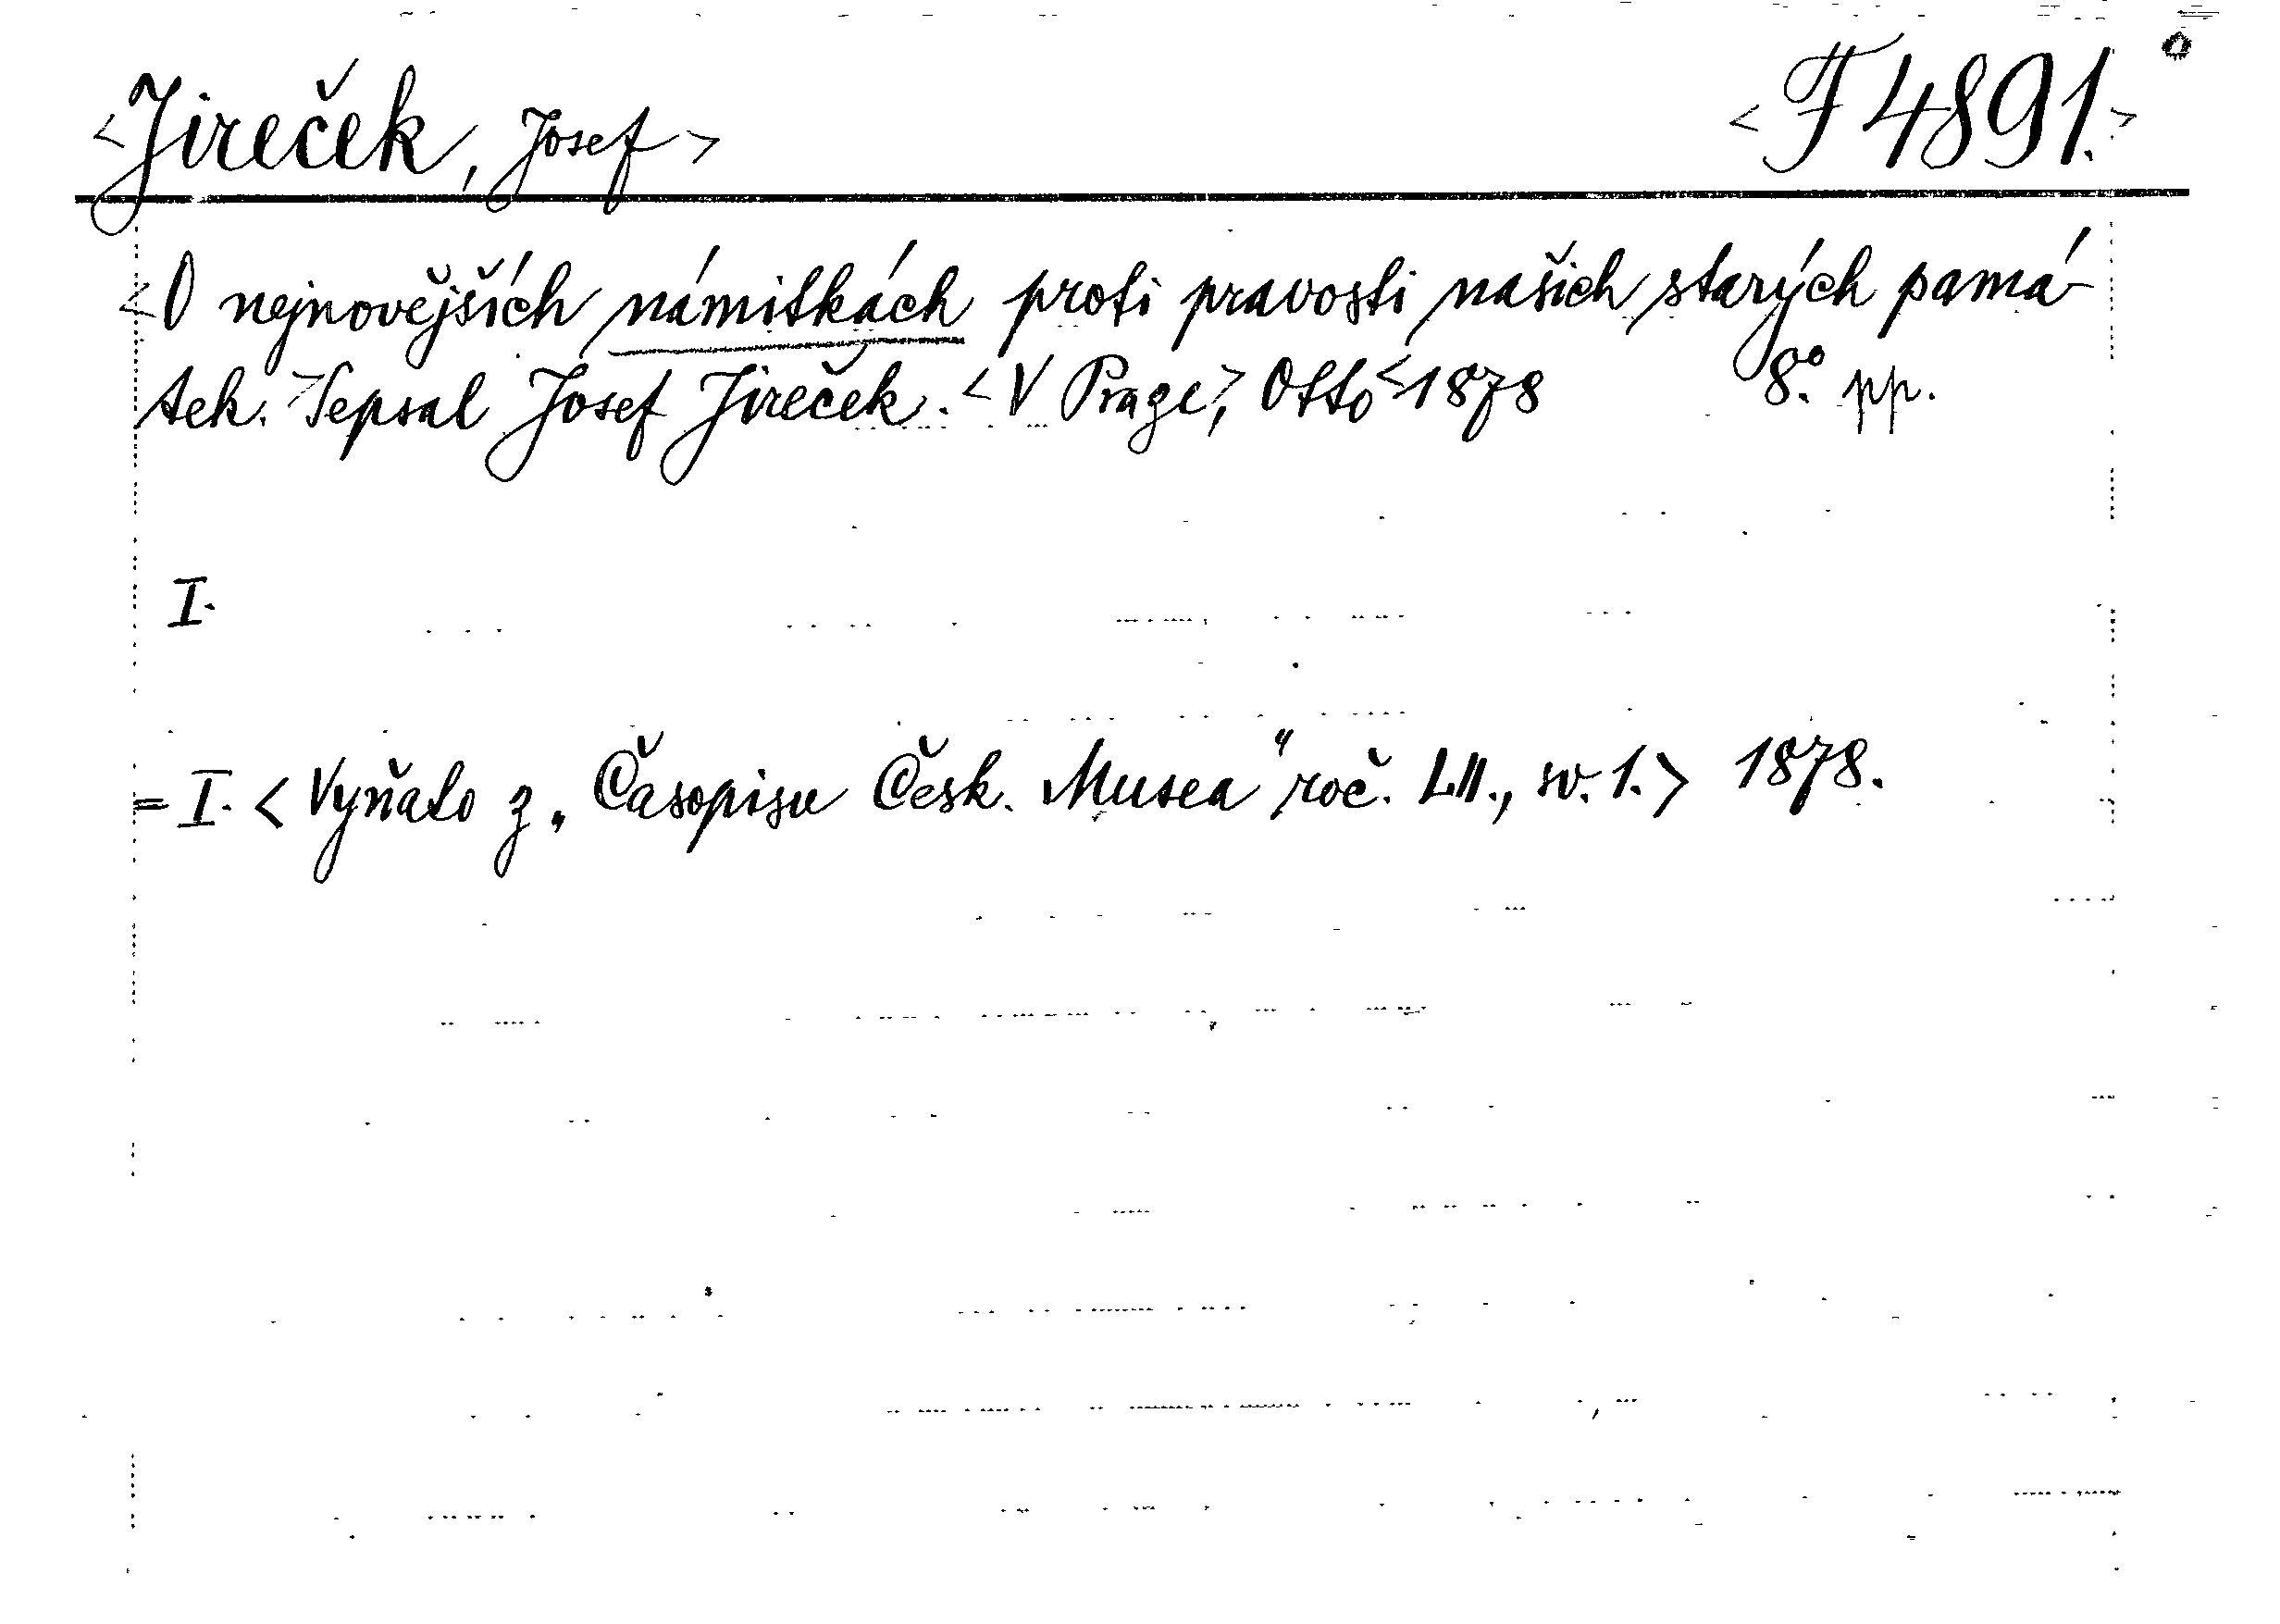 <Jireček, Josef> <F 4891.>
<O nejnovějších námitkách proti pravosti našich starých pamá-
tek. >Sepsal Josef Jireček. <V Praze>, Otto <1878 8.° pp.
I.
= I. < Vyňato z „Časopisu Česk. Musea" roč. LII., sv. 1. > 1878.